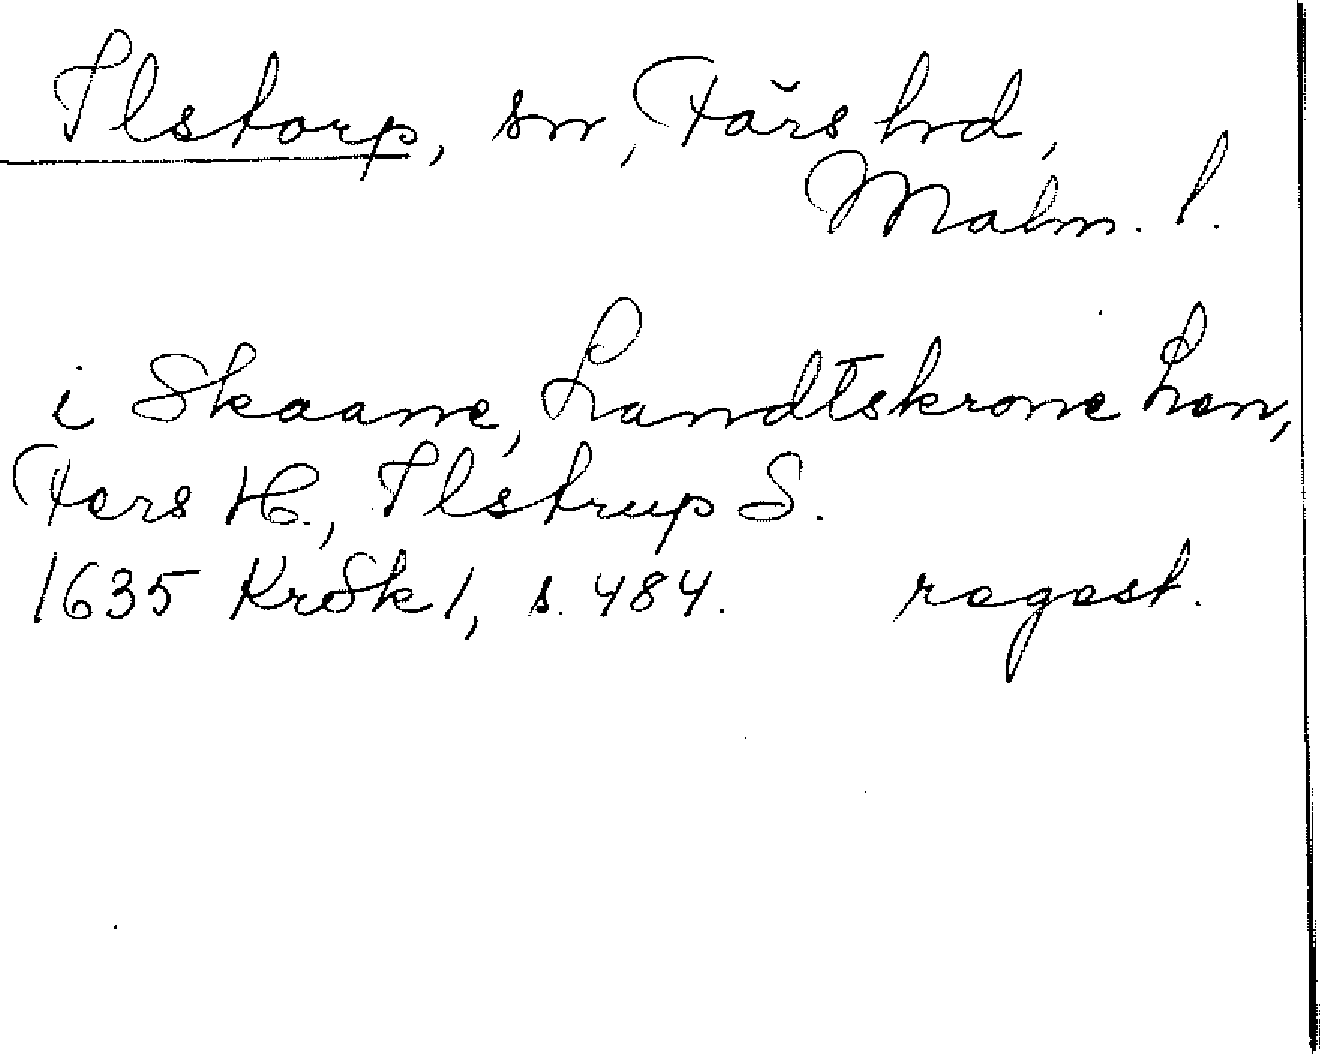 Ilstorp, sn, Färs hd,
Malm. l.
i Skaane, Landtskrone Len,
Fers H., Ilstrup S.
1635 KrSk 1, s. 484. regest.